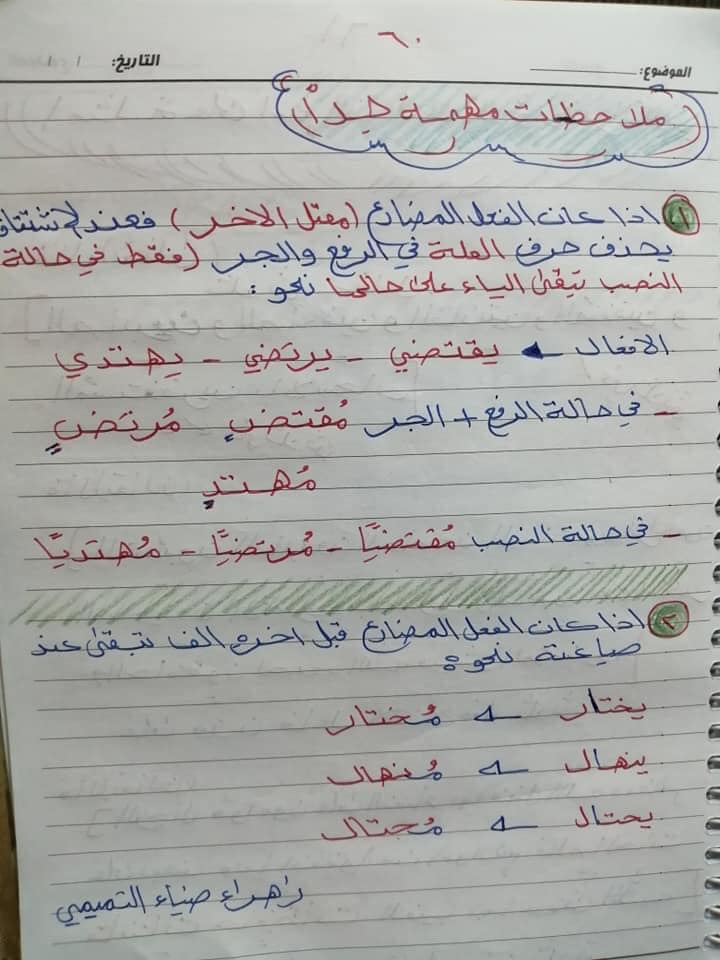 ٦٠
الموضوع: التاريخ: / /
ملاحظات مهمة جداً
١- اذا كان الفعل المضارع (معتل الاخر) فعند الاشتقاق
يحذف حرف العلة في الرفع والجر (فقط في حالة
النصب تبقى الياء على حالها نحو:
الافعال ← يقتضي - يرتضي - يهتدي
- في حالة الرفع + الجر مُقتضٍ مُرتضٍ
مُهتدٍ
- في حالة النصب مُقتضيًا - مُرتضيًا - مُهتديًا
٢- اذا كان الفعل المضارع قبل اخره الف تبقى عند
صياغته نحو:
يختار ← مُختار
ينهال ← مُنهال
يحتال ← مُحتال
زهراء ضياء التميمي